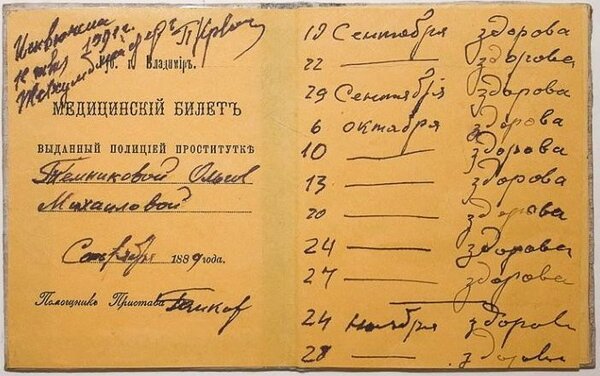 Губ. г. Владиміръ.
МЕДИЦИНСКІЙ БИЛЕТЪ
ВЫДАННЫЙ ПОЛИЦІЕЙ ПРОСТИТУТКѢ
Темниковой Ольгѣ
Михаиловой
Сентября 1889 года.
Помощникъ Пристава
19 Сентября здорова
22 — здорова
29 Сентября здорова
6 октября здорова
10 — здорова
13 — здорова
20 — здорова
24 — здорова
27 — здорова
24 Ноября здорова
28 — здорова